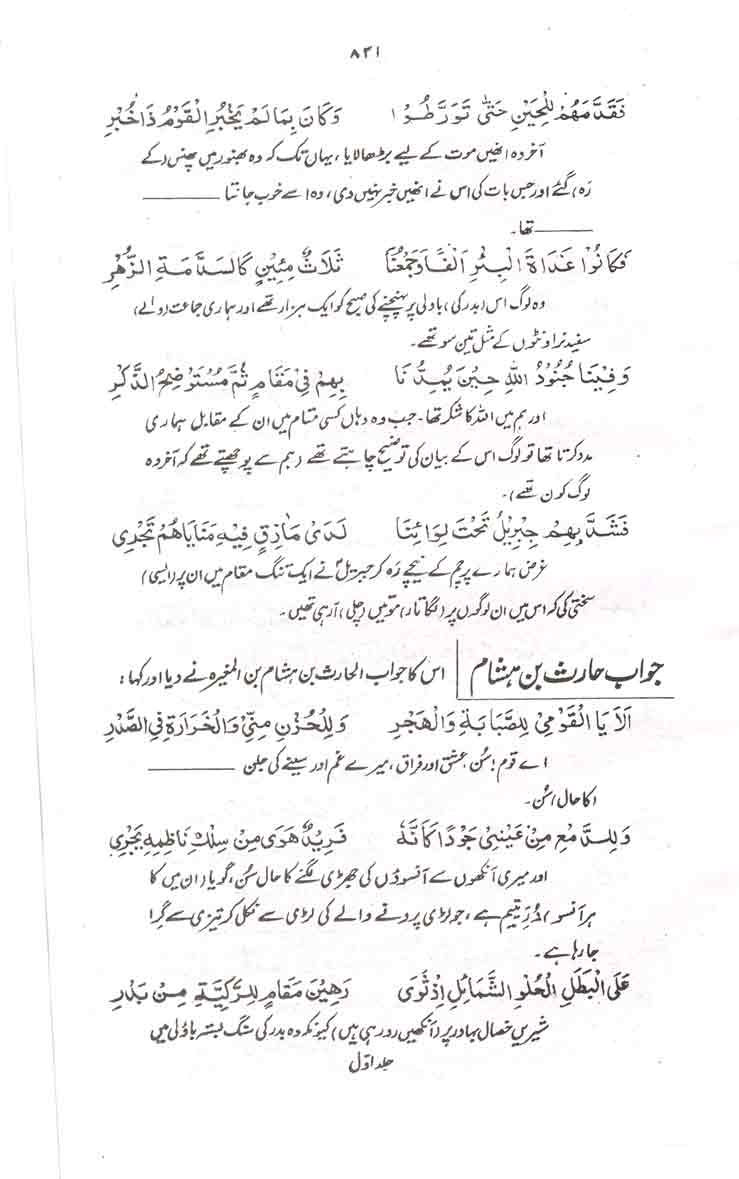 ۸۲۱
فَقَدَّمَهُمْ لِلْحَيْنِ حَتّٰى تَوَرَّطُوْا وَكَانَ بِمَا لَمْ يَخْبُرِ الْقَوْمُ ذَا خُبْرِ
آخر وہ انھیں موت کے لیے بڑھا لایا، یہاں تک کہ وہ بھنور میں پھنس (کے
رہ) گئے اور جس بات کی اس نے انھیں خبر نہیں دی، وہ اسے خوب جانتا
تھا۔
فَكَانُوْا غَدَاةَ الْبِئْرِ اَلْفًا وَجَمْعُنَا ثَلَاثُ مِئِيْنٍ كَالْمُسَدَّمَةِ الزُّهْرِ
وہ لوگ اس (بدر کی) باولی پر پہنچنے کی صبح کو ایک ہزار تھے اور ہماری جماعت (والے)
سفید نر اونٹوں کے مثل تین سو تھے۔
وَفِيْنَا جُنُوْدُ اللهِ حِيْنَ يُمِدُّنَا بِهِمْ فِيْ مَقَامٍ ثُمَّ مُسْتَوْضِحُ الذِّكْرِ
اور ہم میں اللہ کا لشکر تھا۔ جب وہ وہاں کسی مقام میں ان کے مقابل ہماری
مدد کرتا تھا تو لوگ اس کے بیان کی توضیح چاہتے تھے (ہم سے پوچھتے تھے کہ آخر وہ
لوگ کون تھے)۔
فَشَدَّ بِهِمْ جِبْرِيْلُ تَحْتَ لِوَائِنَا لَدٰى مَأْزِقٍ فِيْهِ مَنَايَاهُمْ تَجْرِيْ
غرض ہمارے پرچم کے نیچے رہ کر جبریلؑ نے ایک تنگ مقام میں ان پر (ایسی)
سختی کی کہ اس میں ان لوگوں پر (لگاتار) موتیں (چلی) آرہی تھیں۔
جواب حارث بن ہشام
اس کا جواب الحارث بن ہشام بن المغیرہ نے دیا اور کہا:
اَلَا يَا الْقَوْمِيْ لِلصَّبَابَةِ وَالْهَجْرِ وَلِلْحُزْنِ مِنِّيْ وَالْحَرَارَةِ فِي الصَّدْرِ
اے قوم! سُن عشق اور فراق، میرے غم اور سینے کی جلن
(کا حال) سُن۔
وَلِلدَّمْعِ مِنْ عَيْنَيَّ جَوْدًا كَاَنَّهٗ فَرِيْدٌ هَوٰى مِنْ سِلْكِ نَاظِمِهٖ يَجْرِيْ
اور میری آنکھوں سے آنسوؤں کی جھڑی لگنے کا حال سُن، گویا (ان میں کا
ہر آنسو) دُرِّ یتیم ہے، جو لڑی پرونے والے کی لڑی سے نکل کر تیزی سے گرا
جا رہا ہے۔
عَلَى الْبَطَلِ الْحُلْوِ الشَّمَائِلِ اِذْ ثَوٰى رَهِيْنَ مَقَامٍ لِلرَّكِيَّةِ مِنْ بَدْرِ
شیریں خصال بہادر پر (آنکھیں رو رہی ہیں) کیونکہ وہ بدر کی سنگ بستہ باؤلی میں
جلد اوّل